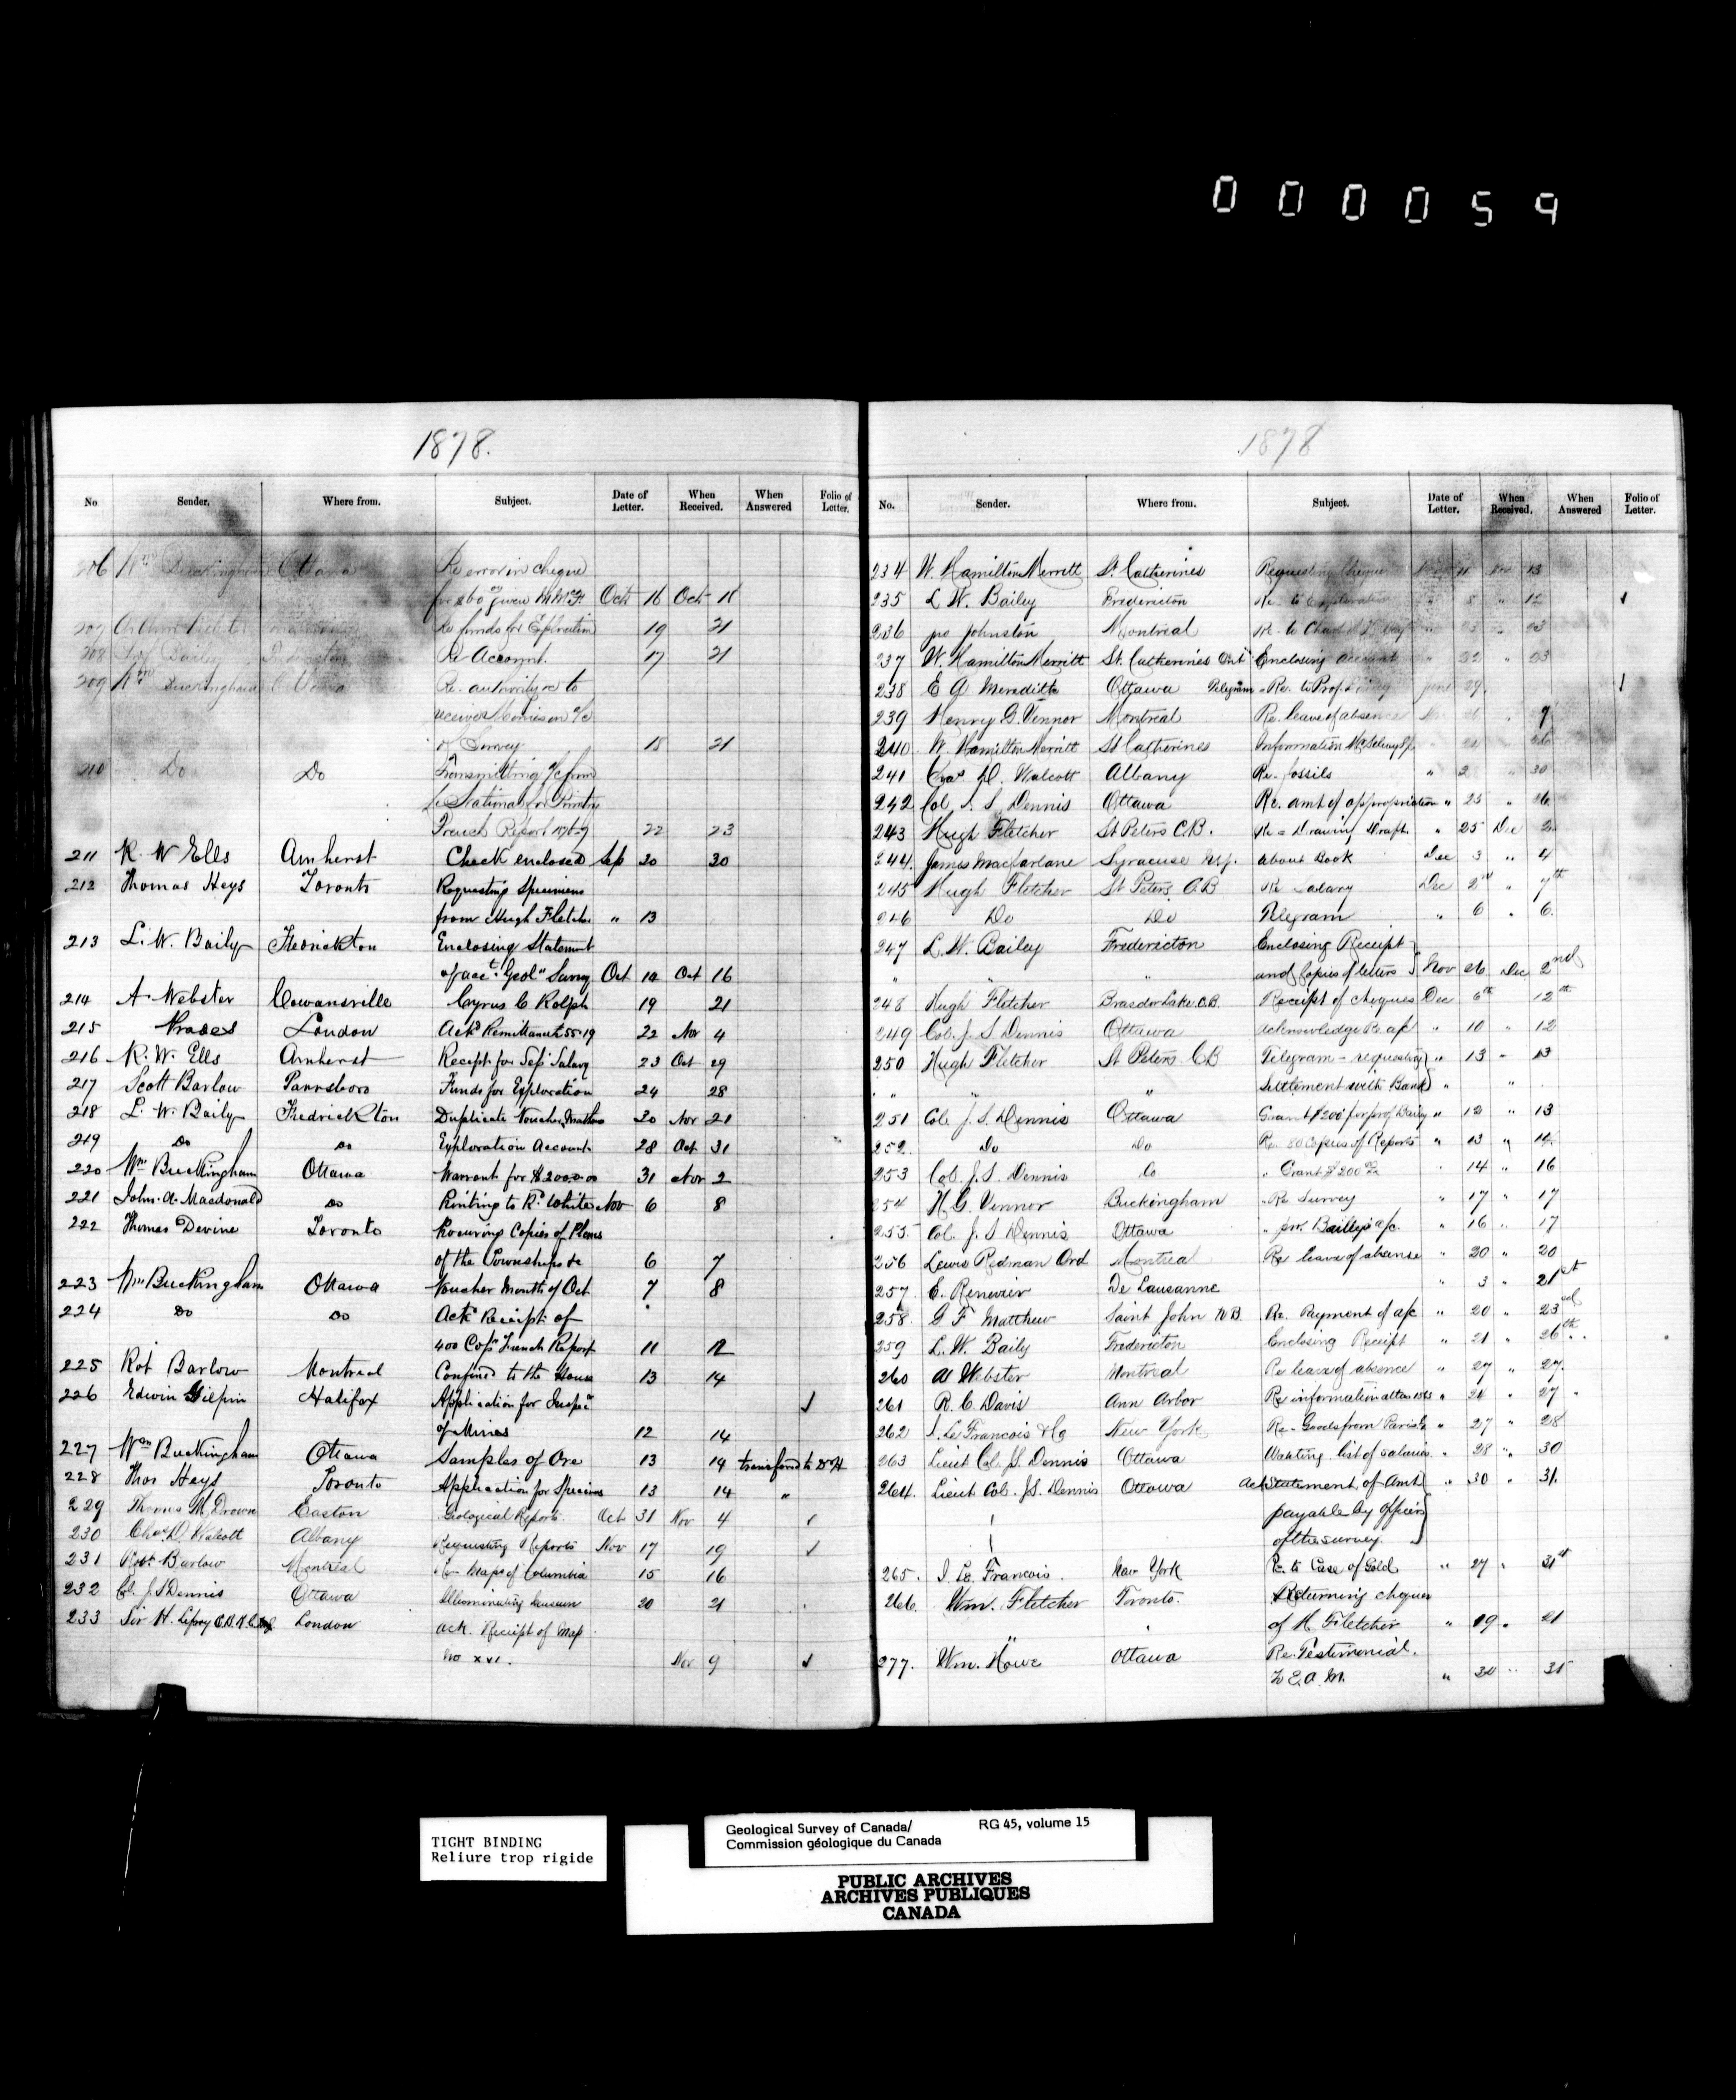 000059
1878.
No Sender. Where from. Subject. Date of Letter. When Received. When Answered Folio of Letter.
206 Wm Buckingham Ottawa Re error in cheque
for $60 given Oct 16 Oct 18
207 Arthur Webster Re funds for Exploration 19 21
208 Bailey Re Account. 17 21
209 Wm Buckingham Ottawa Re. authority to
receive Monies on a/c
of Survey 18 21
210 Do Do Transmitting a/c from
for Printing
French Report 1876-7 22 23
211 R. W Ells Amherst Check enclosed Sep 20 30
212 Thomas Heys Toronto Requesting Specimens
from Hugh Fletcher " 13
213 L. W. Baily Fredrickton Enclosing Statement
of acct. Geol" Survey Oct 14 Oct 16
214 A. Webster Cowansville Cyrus C Rolph 19 21
215 London Ackd Remittance £55-19 22 Nov 4
216 R. W. Ells Amherst Receipt for Sep Salary 23 Oct 29
217 Scott Barlow Parrsboro Funds for Exploration 24 28
218 L. W. Baily Fredrickton Duplicate Voucher Matthews 20 Nov 21
219 Do Do Exploration Account 28 Oct 31
220 Wm Buckingham Ottawa Warrant for $2000.00 31 Nov 2
221 John. A. Macdonald Do Printing to Rd. White Nov 6 8
222 Thomas Devine Toronto Procuring Copies of Plans
of the Townships &c 6 7
223 Wm Buckingham Ottawa Voucher Month of Oct 7 8
224 Do Do Ack Receipt of
400 Cops French Report 11 12
225 Rot Barlow Montreal Confined to the House 13 14
226 Edwin Gilpin Halifax Application for Inspec
of Mines 12 14
227 Wm Buckingham Ottawa Samples of Ore 13 14 to Dr H
228 Thos Heys Toronto Application for Specimens 13 14 "
229 Thomas M. Drown Easton Geological Reports Oct 31 Nov 4
230 Chas D. Walcott Albany Requesting Reports Nov 17 19
231 Robt Barlow Montreal Re Maps of Columbia 15 16
232 Col. J. S Dennis Ottawa Illuminating Museum 20 21
233 Sir H. Lefroy London ack. Receipt of Map
No XVI. Nov 9
1878
No. Sender. Where from. Subject. Date of Letter. When Received. When Answered Folio of Letter.
234 W. Hamilton Merritt St. Catherines Requesting Cheque Nov 11 Nov 13
235 L W. Bailey Fredericton Re to Exploration " 8 " 12
236 Johnston Montreal Re- to " 23 " 23
237 W. Hamilton Merritt St. Catherines Ont Enclosing account " 22 " 23
238 E A Meredith Ottawa Telegram - Re. to Prof Bailey June 29.
239 Henry G. Vennor Montreal Re. leave of absence 26 7
240. W. Hamilton Merritt St Catherines Information
241 Chas D. Walcott Albany Re- fossils " 2 " 30
242 Col J. S Dennis Ottawa Re. amt of appropriation " 25 " 26
243 Hugh Fletcher St Peters C.B. Re = Drawing Draft. " 25 Dec 2
244. James Macfarlane Syracuse N.Y. About Book Dec 3 " 4
245 Hugh Fletcher St Peters C.B Re Salary Dec 2nd " 7th
246 Do Do Telegram " 6 " 6.
247 L. W. Bailey Fredericton Enclosing Receipt
" " " and Copies of letters Nov 26 Dec 2nd
248 Hugh Fletcher Brasdor Lake C.B. Receipt of cheques Dec 6th 12th
249 Col. J. S Dennis Ottawa Acknowledge Re a/c " 10 " 12
250 Hugh Fletcher St Peters C.B Telegram - requesting " 13 " 13
" " " Settlement with Bank " "
251 Col. J. S. Dennis Ottawa Grant $200 for prof Bailey " 12 " 13
252. Do Do Re 80 Copies of Reports " 13 " 14.
253 Col. J. S. Dennis Do " Grant $200 " 14 " 16
254 H. G. Vennor Buckingham " Re Survey " 17 " 17
255 Col. J. S Dennis Ottawa " prof. Bailly's a/c. " 16 " 17
256 Lewis Redman Ord Montreal Re leave of absence " 20 " 20
257. E. Renevier De Lausanne " 3 " 21st
258. G F Matthew Saint John N B. Re. Payment of a/c " 20 " 23rd
259 L. W. Baily Fredericton Enclosing Receipt " 21 " 26th
260 A Webster Montreal Re leave of absence " 27 " 27.
261 R. C. Davis Ann Arbor Re information " 24 " 27
262 J. Le Francois & Co New York Re- Goods from Paris " 27 " 28
263 Lieut Col. J.S. Dennis Ottawa Wanting list of salaries " 28 " 30
264. Lieut Col. J.S. Dennis Ottawa Statement of Amt " 30 " 31.
payable by officers
of the survey.
265. J. Le. Francois. New York Re. to Case of Gold " 27 " 31st
266. Wm. Fletcher Toronto. Returning cheques
" of H. Fletcher " 19 " 21
277. Wm. Howe Ottawa Re. Testimonial.
to E. A. M. " 30 " 31
TIGHT BINDING
Reliure trop rigide
Geological Survey of Canada/ RG 45, volume 15
Commission géologique du Canada
PUBLIC ARCHIVES
ARCHIVES PUBLIQUES
CANADA